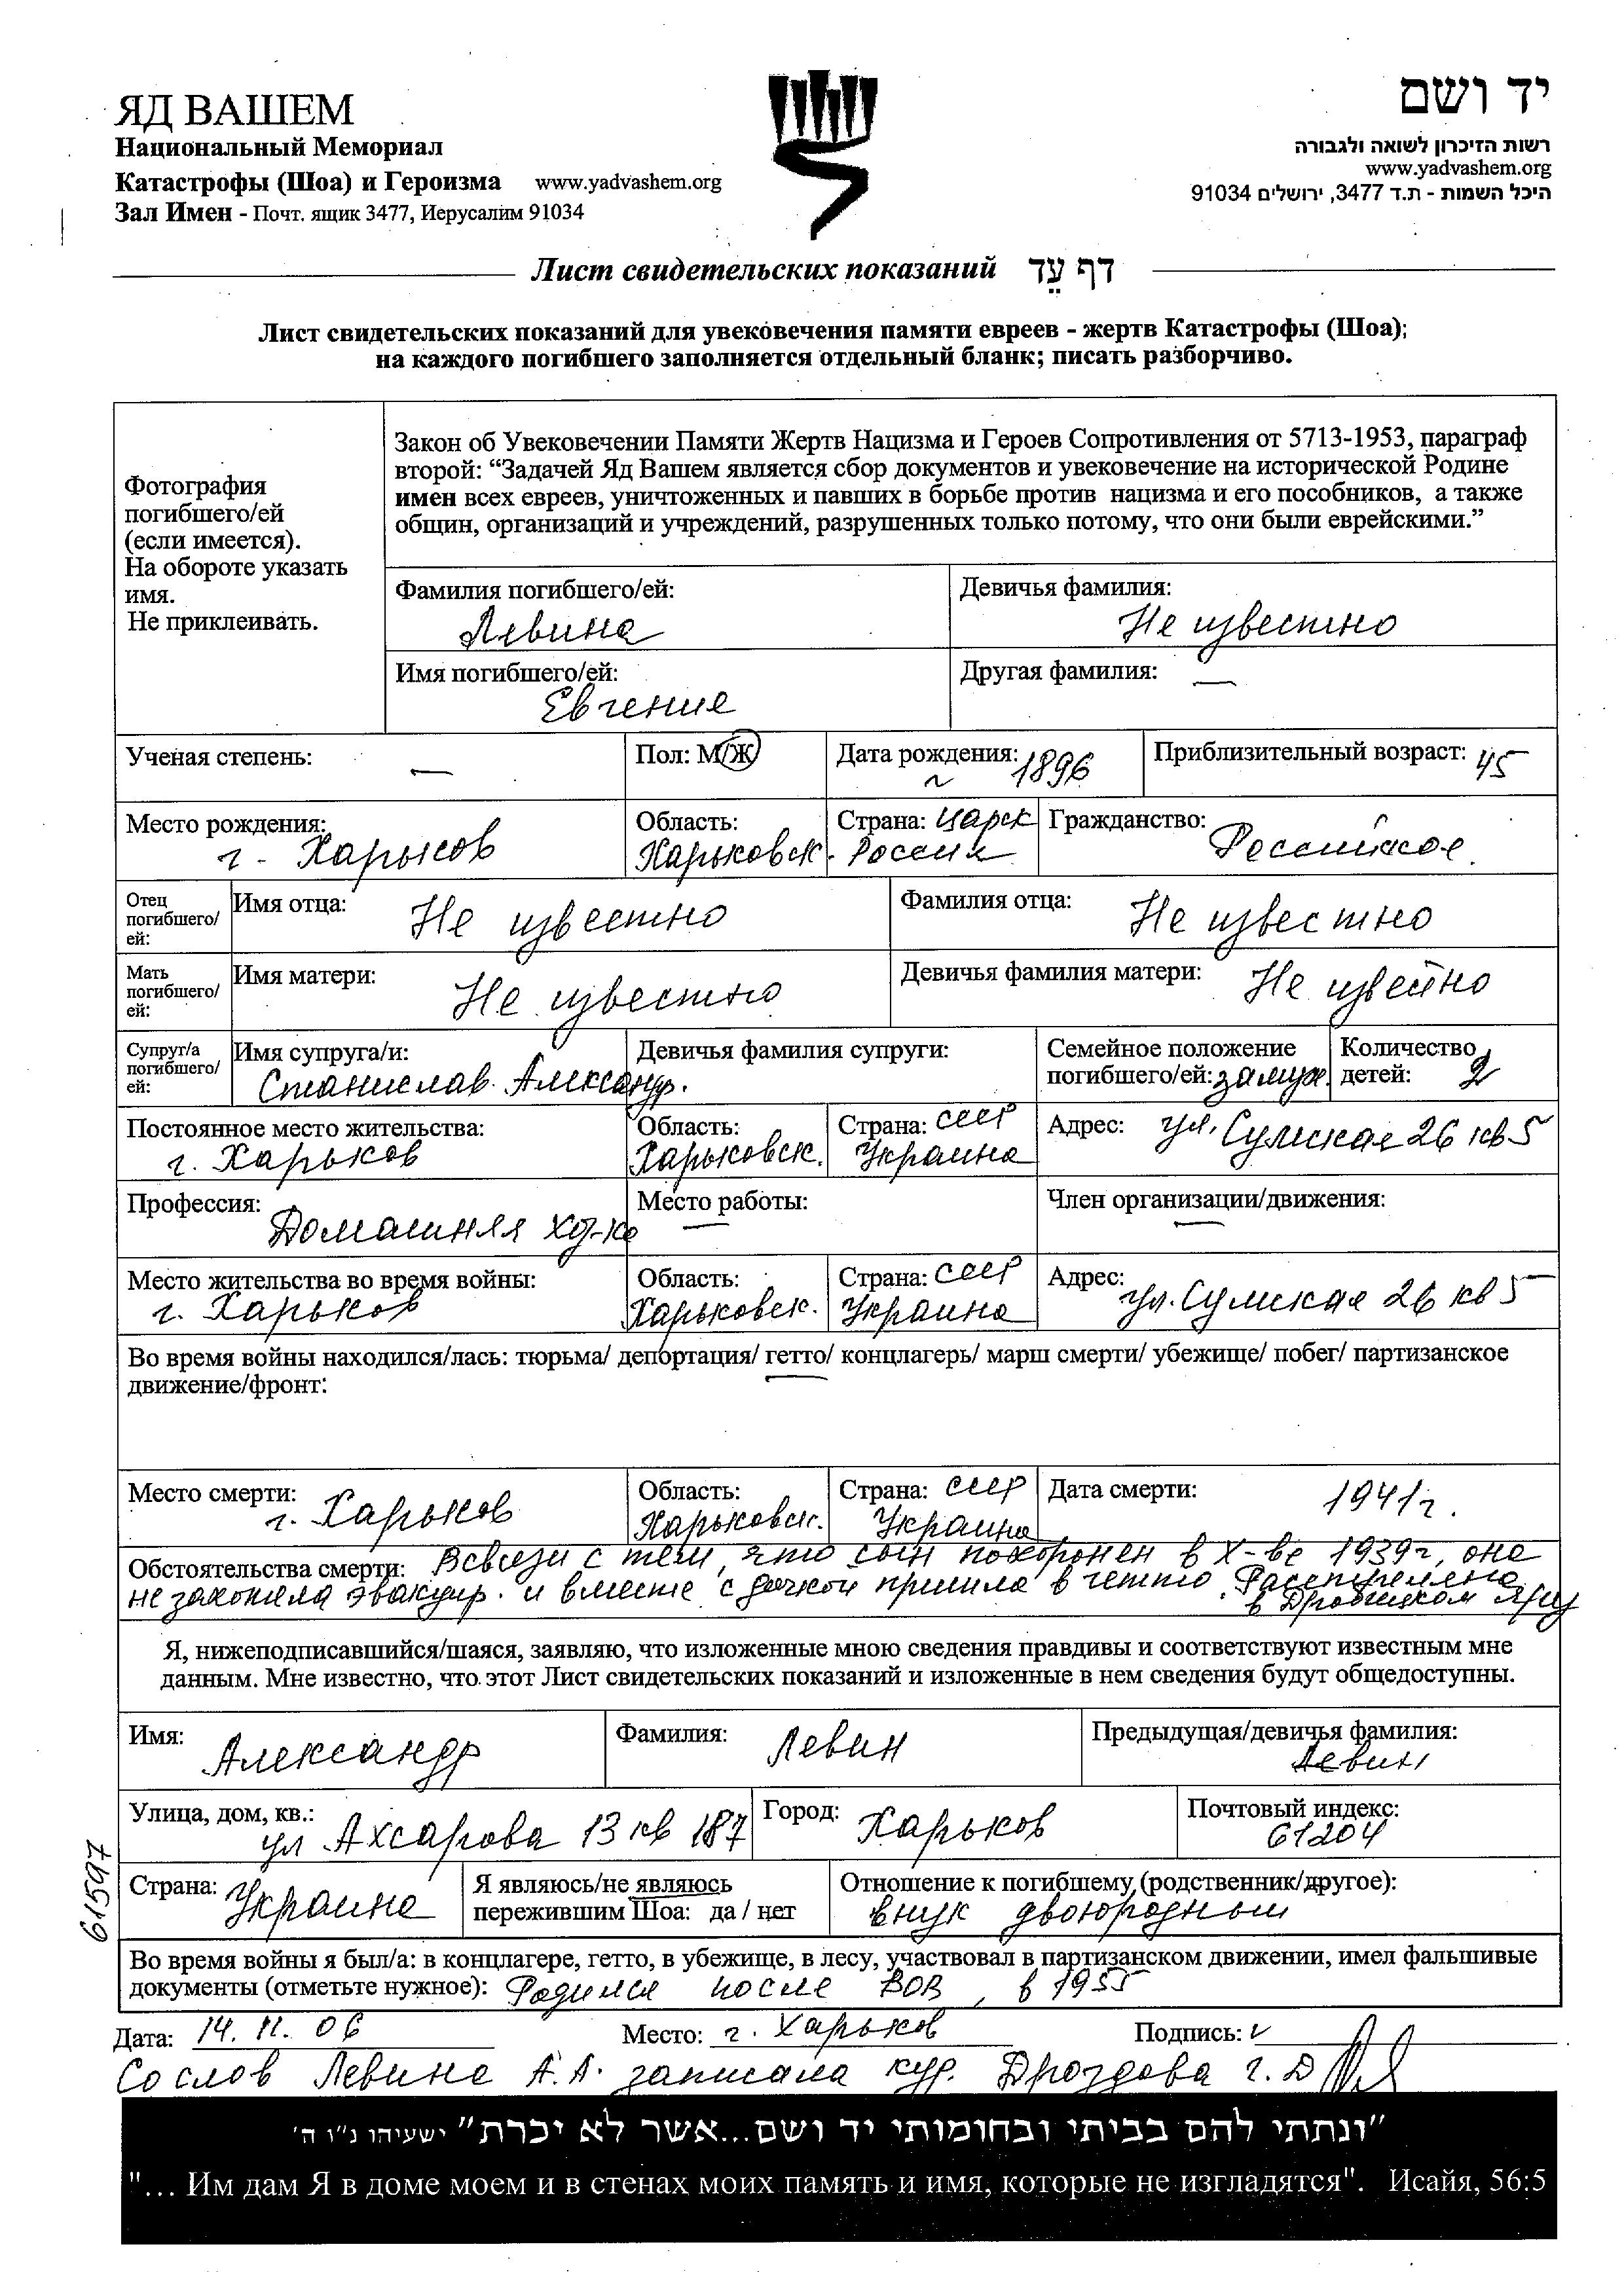 ЯД ВАШЕМ
Национальный Мемориал
Катастрофы (Шоа) и Героизма www.yadvashem.org
Зал Имен - Почт. ящик 3477, Иерусалим 91034
יד ושם
רשות הזיכרון לשואה ולגבורה
www.yadvashem.org
היכל השמות - ת.ד 3477, ירושלים 91034
Лист свидетельских показаний דף עֵד
Лист свидетельских показаний для увековечения памяти евреев - жертв Катастрофы (Шоа);
на каждого погибшего заполняется отдельный бланк; писать разборчиво.
Фотография
погибшего/ей
(если имеется).
На обороте указать
имя.
Не приклеивать.
Закон об Увековечении Памяти Жертв Нацизма и Героев Сопротивления от 5713-1953, параграф
второй: “Задачей Яд Вашем является сбор документов и увековечение на исторической Родине
имен всех евреев, уничтоженных и павших в борьбе против нацизма и его пособников, а также
общин, организаций и учреждений, разрушенных только потому, что они были еврейскими.”
Фамилия погибшего/ей:
Левина
Девичья фамилия:
Не известно
Имя погибшего/ей:
Евгения
Другая фамилия: —
Ученая степень: —
Пол: М/Ж
Дата рождения: ~ 1896
Приблизительный возраст: 45
Место рождения:
г. Харьков
Область:
Харьковск.
Страна: царск
Россия
Гражданство:
Российское.
Отец
погибшего/
ей:
Имя отца: Не известно
Фамилия отца: Не известно
Мать
погибшего/
ей:
Имя матери: Не известно
Девичья фамилия матери: Не известно
Супруг/а
погибшего/
ей:
Имя супруга/и:
Станислав Александр.
Девичья фамилия супруги:
Семейное положение
погибшего/ей: замуж.
Количество
детей: 2
Постоянное место жительства:
г. Харьков
Область:
Харьковск.
Страна: СССР
Украина
Адрес: ул. Сумская 26 кв 5
Профессия:
Домашняя хоз-ка
Место работы:
—
Член организации/движения:
—
Место жительства во время войны:
г. Харьков
Область:
Харьковск.
Страна: СССР
Украина
Адрес:
ул. Сумская 26 кв 5
Во время войны находился/лась: тюрьма/ депортация/ гетто/ концлагерь/ марш смерти/ убежище/ побег/ партизанское
движение/фронт:
Место смерти:
г. Харьков
Область:
Харьковск.
Страна: СССР
Украина
Дата смерти:
1941г.
Обстоятельства смерти: Всвязи с тем, что сын похоронен в Х-ве 1939г, она
не захотела эвакуир. и вместе с дочкой пришла в гетто. Расстреляна
в Дробицком Яру
Я, нижеподписавшийся/шаяся, заявляю, что изложенные мною сведения правдивы и соответствуют известным мне
данным. Мне известно, что этот Лист свидетельских показаний и изложенные в нем сведения будут общедоступны.
Имя: Александр
Фамилия: Левин
Предыдущая/девичья фамилия:
Левин
Улица, дом, кв.:
ул Ахсарова 13 кв 187
Город:
Харьков
Почтовый индекс:
61204
61597
Страна: Украина
Я являюсь/не являюсь
пережившим Шоа: да / нет
Отношение к погибшему (родственник/другое):
внук двоюродный
Во время войны я был/а: в концлагере, гетто, в убежище, в лесу, участвовал в партизанском движении, имел фальшивые
документы (отметьте нужное): Родился после ВОВ, в 1955
Дата: 14.11.06 Место: г. Харьков Подпись: v
Со слов Левина А.А. записала кур. Дроздова Г.Д
״ונתתי להם בביתי ובחומותי יד ושם...אשר לא יכרת״ ישעיהו נ״ו ה׳
"... Им дам Я в доме моем и в стенах моих память и имя, которые не изгладятся". Исайя, 56:5